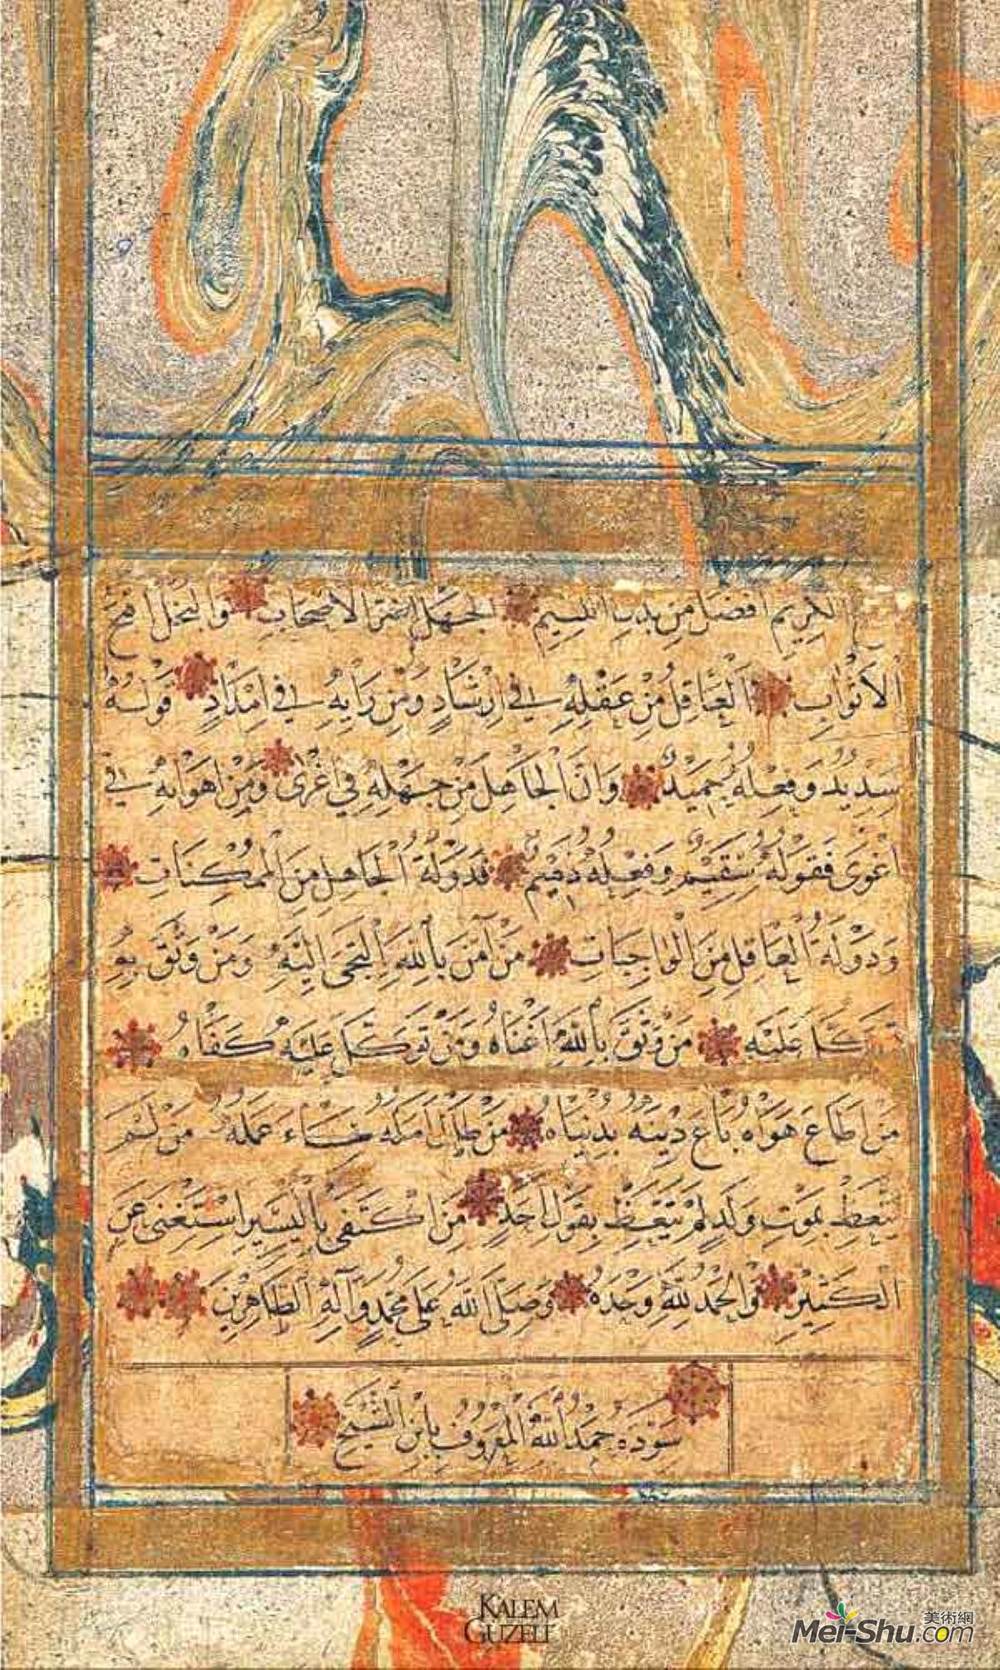 الكريم افضل من بذلها اللئيم الجهل اضر الاصحاب والبخل اقبح
الْأَثْوَابِ اَلْعَاقِلُ مِنْ عَقْلِهِ فِي اِرْشَادٍ وَمِنْ رَأيِهِ فِي اِمْدَادٍ قَوْلُهُ
سَدِيدٌ وَفِعْلُهُ حَمِيدٌ وَانَّ الْجَاهِلَ مِنْ جَهْلِهِ فِي وَمِنْ اهْوَائِهِ فِي
اغْوَى فَقَوْلُهُ سَقِيْمٌ وَفِعْلُهُ ذَمِيْمٌ فَدَوْلَةُ الْجَاهِلِ مِنَ الْمُمْكِنَاتِ
وَدَوْلَةُ الْعَاقِلِ مِنَ الْوَاجِبَاتِ مَنْ آمَنَ بِاللّٰهِ اِلْتَجَى اِلَيْهِ وَمَنْ وَثِقَ بِهِ
تَوَكَّلَ عَلَيْهِ مَنْ وَثِقَ بِاللّٰهِ اَغْنَاهُ وَمَنْ تَوَكَّلَ عَلَيْهِ كَفَاهُ
مَنْ اَطَاعَ هَوَاهُ بَاعَ دِيْنَهُ بِدُنْيَاهُ مَنْ طَالَ اَمَلُهُ سَاءَ عَمَلُهُ مَنْ لَمْ
يَتَّعِظْ بِمَوْتِ وَلَدٍ لَمْ يَتَّعِظْ بِقَوْلِ اَحَدٍ مَنِ اكْتَفَى بِالْيَسِيْرِ اسْتَغْنَى عَنِ
الْكَثِيْرِ وَالْحَمْدُ لِلّٰهِ وَحْدَهُ وَصَلَّى اللّٰهُ عَلَى مُحَمَّدٍ وَآلِهِ الطَّاهِرِيْنَ
سَوَّدَهُ حَمْدُ اللّٰهِ الْمَعْرُوفُ بِابْنِ الشَّيْخِ
KALEM
GUZELI
美術網
Mei-Shu.com